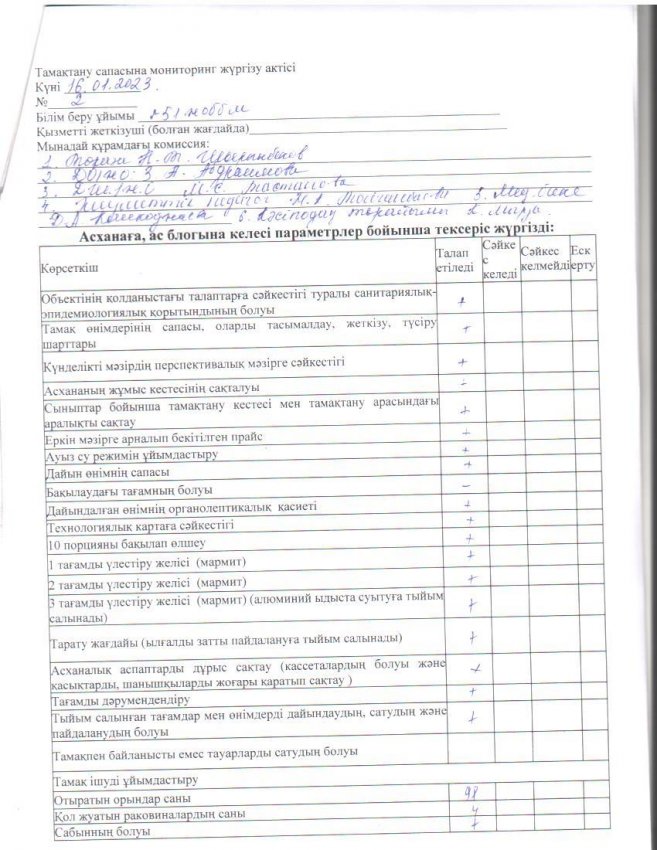 Тамақтану сапасына мониторинг жүргізу актісі
Күні 16.01.2023.
№ 2
Білім беру ұйымы №51 жоббм
Қызметті жеткізуші (болған жағдайда)
Мынадай құрамдағы комиссия:
1.
2. ДОІЖО: З. А.
3. ДШІЖО М.С. Тастанова
4. педагог 5. Мед.
6. Кәсіподақ төрайымы
Асханаға, ас блогына келесі параметрлер бойынша тексеріс жүргізді:
Көрсеткіш Талап етіледі Сәйке с келеді Сәйкес келмейді Еск ерту
Объектінің қолданыстағы талаптарға сәйкестігі туралы санитариялық-
эпидемиологиялық қорытындының болуы +
Тамақ өнімдерінің сапасы, оларды тасымалдау, жеткізу, түсіру
шарттары +
Күнделікті мәзірдің перспективалық мәзірге сәйкестігі +
Асхананың жұмыс кестесінің сақталуы
Сыныптар бойынша тамақтану кестесі мен тамақтану арасындағы
аралықты сақтау +
Еркін мәзірге арналып бекітілген прайс +
Ауыз су режимін ұйымдастыру +
Дайын өнімнің сапасы +
Бақылаудағы тағамның болуы –
Дайындалған өнімнің органолептикалық қасиеті +
Технологиялық картаға сәйкестігі +
10 порцияны бақылап өлшеу +
1 тағамды үлестіру желісі (мармит) +
2 тағамды үлестіру желісі (мармит) +
3 тағамды үлестіру желісі (мармит) (алюминий ыдыста суытуға тыйым
салынады) +
Тарату жағдайы (ылғалды затты пайдалануға тыйым салынады) +
Асханалық аспаптарды дұрыс сақтау (кассеталардың болуы және
қасықтарды, шанышқыларды жоғары қаратып сақтау ) +
Тағамды дәрумендендіру +
Тыйым салынған тағамдар мен өнімдерді дайындаудың, сатудың және
пайдаланудың болуы +
Тамақпен байланысты емес тауарларды сатудың болуы
Тамақ ішуді ұйымдастыру
Отыратын орындар саны 98
Қол жуатын раковиналардың саны 4
Сабынның болуы +